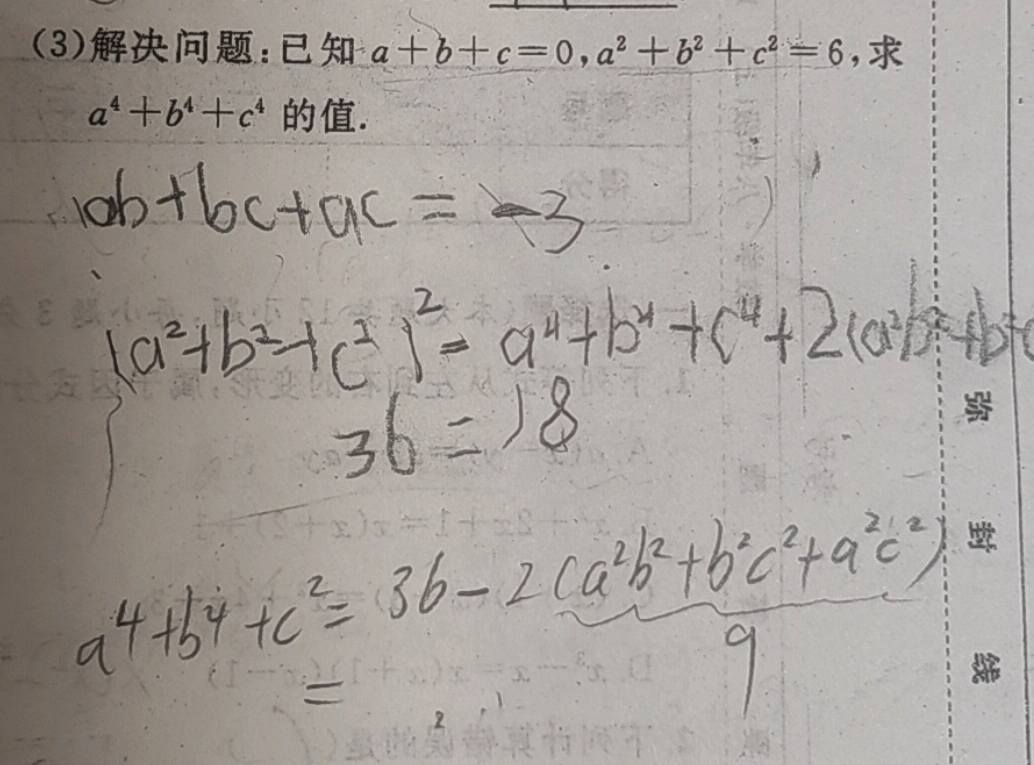 (3)解决问题:已知 a+b+c=0,a²+b²+c²=6,求
a⁴+b⁴+c⁴ 的值.
ab+bc+ac=-3
(a²+b²+c²)²=a⁴+b⁴+c⁴+2(a²b²+b²c
36=18
a⁴+b⁴+c²=36-2(a²b²+b²c²+a²c²)
9
=
弥
封
线